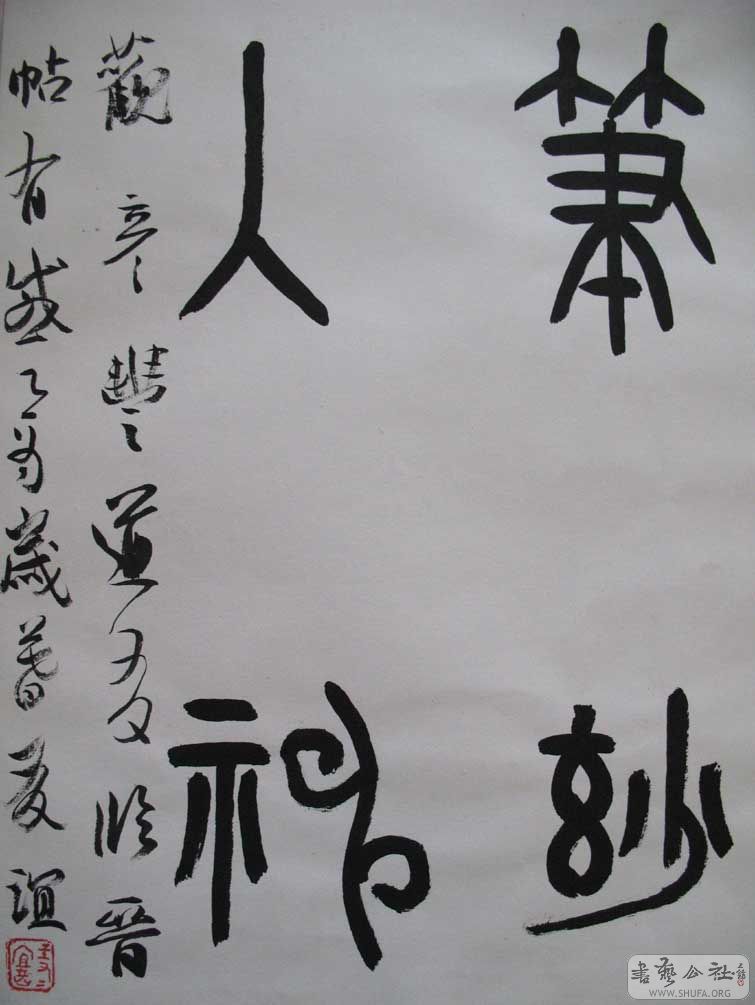 筆玅
入神
觀彥豐道友臨晉
帖有感乙酉歲暮夏誼
書藝公社
WWW.SHUFA.ORG